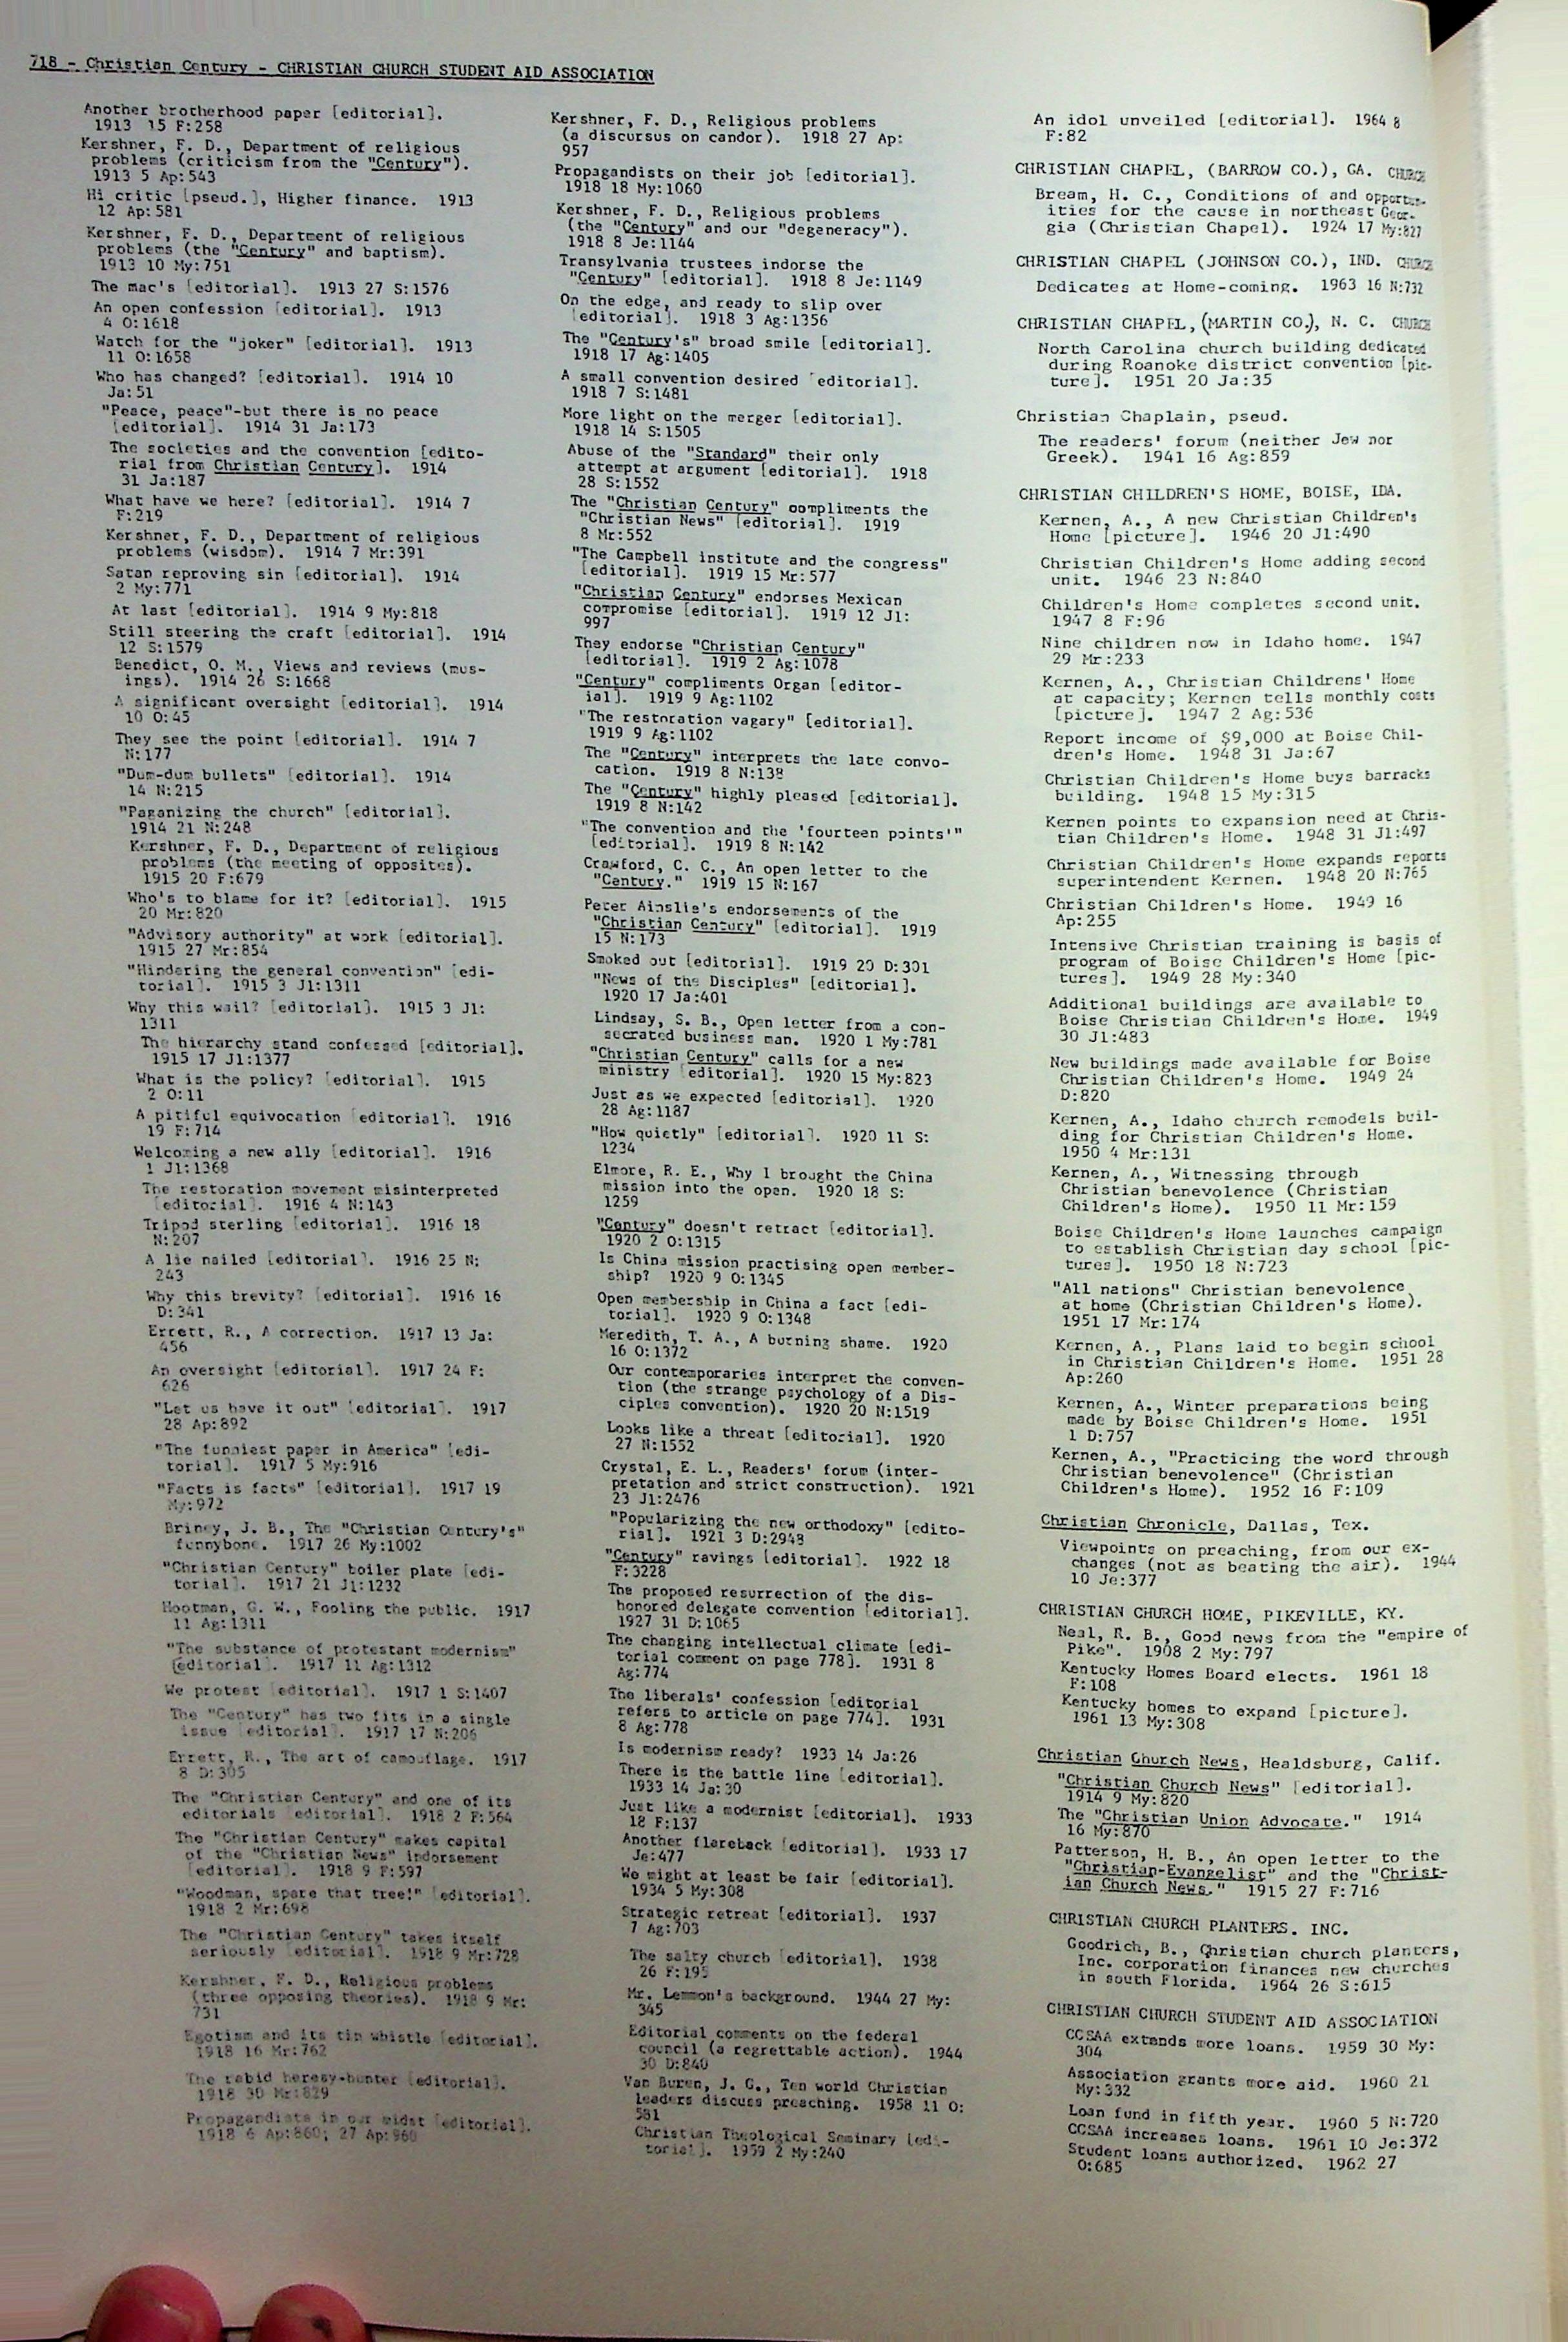 718 - Christian Century - CHRISTIAN CHURCH STUDENT AID ASSOCIATION
Another brotherhood paper [editorial].
1913 15 F:258
Kershner, F. D., Department of religious
problems (criticism from the "Century").
1913 5 Ap:543
Hi critic [pseud.], Higher finance. 1913
12 Ap:581
Kershner, F. D., Department of religious
problems (the "Century" and baptism).
1913 10 My:751
The mac's [editorial]. 1913 27 S:1576
An open confession [editorial]. 1913
4 O:1618
Watch for the "joker" [editorial]. 1913
11 O:1658
Who has changed? [editorial]. 1914 10
Ja:51
"Peace, peace"-but there is no peace
[editorial]. 1914 31 Ja:173
The societies and the convention [edito-
rial from Christian Century]. 1914
31 Ja:187
What have we here? [editorial]. 1914 7
F:219
Kershner, F. D., Department of religious
problems (wisdom). 1914 7 Mr:391
Satan reproving sin [editorial]. 1914
2 My:771
At last [editorial]. 1914 9 My:818
Still steering the craft [editorial]. 1914
12 S:1579
Benedict, O. M., Views and reviews (mus-
ings). 1914 26 S:1668
A significant oversight [editorial]. 1914
10 O:45
They see the point [editorial]. 1914 7
N:177
"Dum-dum bullets" [editorial]. 1914
14 N:215
"Paganizing the church" [editorial].
1914 21 N:248
Kershner, F. D., Department of religious
problems (the meeting of opposites).
1915 20 F:679
Who's to blame for it? [editorial]. 1915
20 Mr:820
"Advisory authority" at work [editorial].
1915 27 Mr:854
"Hindering the general convention" [edi-
torial]. 1915 3 Jl:1311
Why this wail? [editorial]. 1915 3 Jl:
1311
The hierarchy stand confessed [editorial].
1915 17 Jl:1377
What is the policy? [editorial]. 1915
2 O:11
A pitiful equivocation [editorial]. 1916
19 F:714
Welcoming a new ally [editorial]. 1916
1 Jl:1368
The restoration movement misinterpreted
[editorial]. 1916 4 N:143
Tripod sterling [editorial]. 1916 18
N:207
A lie nailed [editorial]. 1916 25 N:
243
Why this brevity? [editorial]. 1916 16
D:341
Errett, R., A correction. 1917 13 Ja:
456
An oversight [editorial]. 1917 24 F:
626
"Let us have it out" [editorial]. 1917
28 Ap:892
"The funniest paper in America" [edi-
torial]. 1917 5 My:916
"Facts is facts" [editorial]. 1917 19
My:972
Briney, J. B., The "Christian Century's"
funnybone. 1917 26 My:1002
"Christian Century" boiler plate [edi-
torial]. 1917 21 Jl:1232
Hootman, G. W., Fooling the public. 1917
11 Ag:1311
"The substance of protestant modernism"
[editorial]. 1917 11 Ag:1312
We protest [editorial]. 1917 1 S:1407
The "Century" has two fits in a single
issue [editorial]. 1917 17 N:206
Errett, R., The art of camouflage. 1917
8 D:305
The "Christian Century" and one of its
editorials [editorial]. 1918 2 F:564
The "Christian Century" makes capital
of the "Christian News" indorsement
[editorial]. 1918 9 F:597
"Woodman, spare that tree!" [editorial].
1918 2 Mr:698
The "Christian Century" takes itself
seriously [editorial]. 1918 9 Mr:728
Kershner, F. D., Religious problems
(three opposing theories). 1918 9 Mr:
731
Egotism and its tin whistle [editorial].
1918 16 Mr:762
The rabid heresy-hunter [editorial].
1918 30 Mr:829
Propagandists in our midst [editorial].
1918 6 Ap:860; 27 Ap:960
Kershner, F. D., Religious problems
(a discursus on candor). 1918 27 Ap:
957
Propagandists on their job [editorial].
1918 18 My:1060
Kershner, F. D., Religious problems
(the "Century" and our "degeneracy").
1918 8 Je:1144
Transylvania trustees indorse the
"Century" [editorial]. 1918 8 Je:1149
On the edge, and ready to slip over
[editorial]. 1918 3 Ag:1356
The "Century's" broad smile [editorial].
1918 17 Ag:1405
A small convention desired [editorial].
1918 7 S:1481
More light on the merger [editorial].
1918 14 S:1505
Abuse of the "Standard" their only
attempt at argument [editorial]. 1918
28 S:1552
The "Christian Century" compliments the
"Christian News" [editorial]. 1919
8 Mr:552
"The Campbell institute and the congress"
[editorial]. 1919 15 Mr:577
"Christian Century" endorses Mexican
compromise [editorial]. 1919 12 Jl:
997
They endorse "Christian Century"
[editorial]. 1919 2 Ag:1078
"Century" compliments Organ [editor-
ial]. 1919 9 Ag:1102
"The restoration vagary" [editorial].
1919 9 Ag:1102
The "Century" interprets the late convo-
cation. 1919 8 N:138
The "Century" highly pleased [editorial].
1919 8 N:142
"The convention and the 'fourteen points'"
[editorial]. 1919 8 N:142
Crawford, C. C., An open letter to the
"Century." 1919 15 N:167
Peter Ainslie's endorsements of the
"Christian Century" [editorial]. 1919
15 N:173
Smoked out [editorial]. 1919 20 D:301
"News of the Disciples" [editorial].
1920 17 Ja:401
Lindsay, S. B., Open letter from a con-
secrated business man. 1920 1 My:781
"Christian Century" calls for a new
ministry [editorial]. 1920 15 My:823
Just as we expected [editorial]. 1920
28 Ag:1187
"How quietly" [editorial]. 1920 11 S:
1234
Elmore, R. E., Why I brought the China
mission into the open. 1920 18 S:
1259
"Century" doesn't retract [editorial].
1920 2 O:1315
Is China mission practising open member-
ship? 1920 9 O:1345
Open membership in China a fact [edi-
torial]. 1920 9 O:1348
Meredith, T. A., A burning shame. 1920
16 O:1372
Our contemporaries interpret the conven-
tion (the strange psychology of a Dis-
ciples convention). 1920 20 N:1519
Looks like a threat [editorial]. 1920
27 N:1552
Crystal, E. L., Readers' forum (inter-
pretation and strict construction). 1921
23 Jl:2476
"Popularizing the new orthodoxy" [edito-
rial]. 1921 3 D:2948
"Century" ravings [editorial]. 1922 18
F:3228
The proposed resurrection of the dis-
honored delegate convention [editorial].
1927 31 D:1065
The changing intellectual climate [edi-
torial comment on page 778]. 1931 8
Ag:774
The liberals' confession [editorial
refers to article on page 774]. 1931
8 Ag:778
Is modernism ready? 1933 14 Ja:26
There is the battle line [editorial].
1933 14 Ja:30
Just like a modernist [editorial]. 1933
18 F:137
Another flareback [editorial]. 1933 17
Je:477
We might at least be fair [editorial].
1934 5 My:308
Strategic retreat [editorial]. 1937
7 Ag:703
The salty church [editorial]. 1938
26 F:195
Mr. Lemmon's background. 1944 27 My:
345
Editorial comments on the federal
council (a regrettable action). 1944
30 D:840
Van Buren, J. G., Ten world Christian
leaders discuss preaching. 1958 11 O:
581
Christian Theological Seminary [edi-
torial]. 1959 2 My:240
An idol unveiled [editorial]. 1964 8
F:82
CHRISTIAN CHAPEL, (BARROW CO.), GA. CHURCH
Bream, H. C., Conditions of and opportun-
ities for the cause in northeast Geor-
gia (Christian Chapel). 1924 17 My:827
CHRISTIAN CHAPEL (JOHNSON CO.), IND. CHURCH
Dedicates at Home-coming. 1963 16 N:732
CHRISTIAN CHAPEL, (MARTIN CO.), N. C. CHURCH
North Carolina church building dedicated
during Roanoke district convention [pic-
ture]. 1951 20 Ja:35
Christian Chaplain, pseud.
The readers' forum (neither Jew nor
Greek). 1941 16 Ag:859
CHRISTIAN CHILDREN'S HOME, BOISE, IDA.
Kernen, A., A new Christian Children's
Home [picture]. 1946 20 Jl:490
Christian Children's Home adding second
unit. 1946 23 N:840
Children's Home completes second unit.
1947 8 F:96
Nine children now in Idaho home. 1947
29 Mr:233
Kernen, A., Christian Childrens' Home
at capacity; Kernen tells monthly costs
[picture]. 1947 2 Ag:536
Report income of $9,000 at Boise Chil-
dren's Home. 1948 31 Ja:67
Christian Children's Home buys barracks
building. 1948 15 My:315
Kernen points to expansion need at Chris-
tian Children's Home. 1948 31 Jl:497
Christian Children's Home expands reports
superintendent Kernen. 1948 20 N:765
Christian Children's Home. 1949 16
Ap:255
Intensive Christian training is basis of
program of Boise Children's Home [pic-
tures]. 1949 28 My:340
Additional buildings are available to
Boise Christian Children's Home. 1949
30 Jl:483
New buildings made available for Boise
Christian Children's Home. 1949 24
D:820
Kernen, A., Idaho church remodels buil-
ding for Christian Children's Home.
1950 4 Mr:131
Kernen, A., Witnessing through
Christian benevolence (Christian
Children's Home). 1950 11 Mr:159
Boise Children's Home launches campaign
to establish Christian day school [pic-
tures]. 1950 18 N:723
"All nations" Christian benevolence
at home (Christian Children's Home).
1951 17 Mr:174
Kernen, A., Plans laid to begin school
in Christian Children's Home. 1951 28
Ap:260
Kernen, A., Winter preparations being
made by Boise Children's Home. 1951
1 D:757
Kernen, A., "Practicing the word through
Christian benevolence" (Christian
Children's Home). 1952 16 F:109
Christian Chronicle, Dallas, Tex.
Viewpoints on preaching, from our ex-
changes (not as beating the air). 1944
10 Je:377
CHRISTIAN CHURCH HOME, PIKEVILLE, KY.
Neal, R. B., Good news from the "empire of
Pike". 1908 2 My:797
Kentucky Homes Board elects. 1961 18
F:108
Kentucky homes to expand [picture].
1961 13 My:308
Christian Church News, Healdsburg, Calif.
"Christian Church News" [editorial].
1914 9 My:820
The "Christian Union Advocate." 1914
16 My:870
Patterson, H. B., An open letter to the
"Christian-Evangelist" and the "Christ-
ian Church News." 1915 27 F:716
CHRISTIAN CHURCH PLANTERS. INC.
Goodrich, B., Christian church planters,
Inc. corporation finances new churches
in south Florida. 1964 26 S:615
CHRISTIAN CHURCH STUDENT AID ASSOCIATION
CCSAA extends more loans. 1959 30 My:
304
Association grants more aid. 1960 21
My:332
Loan fund in fifth year. 1960 5 N:720
CCSAA increases loans. 1961 10 Je:372
Student loans authorized. 1962 27
O:685